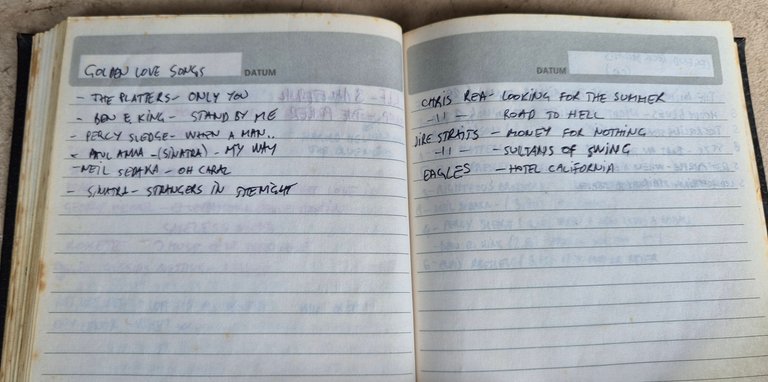 GOLDEN LOVE SONGS
DATUM
- THE PLATTERS - ONLY YOU
- BEN E. KING - STAND BY ME
- PERCY SLEDGE - WHEN A MAN..
- PAUL ANKA - (SINATRA) - MY WAY
- NEIL SEDAKA - OH CAROL
- SINATRA - STRANGERS IN THE NIGHT
DATUM
CHRIS REA - LOOKING FOR THE SUMMER
-11- - ROAD TO HELL
DIRE STRAITS - MONEY FOR NOTHING
-11- - SULTANS OF SWING
EAGLES - HOTEL CALIFORNIA